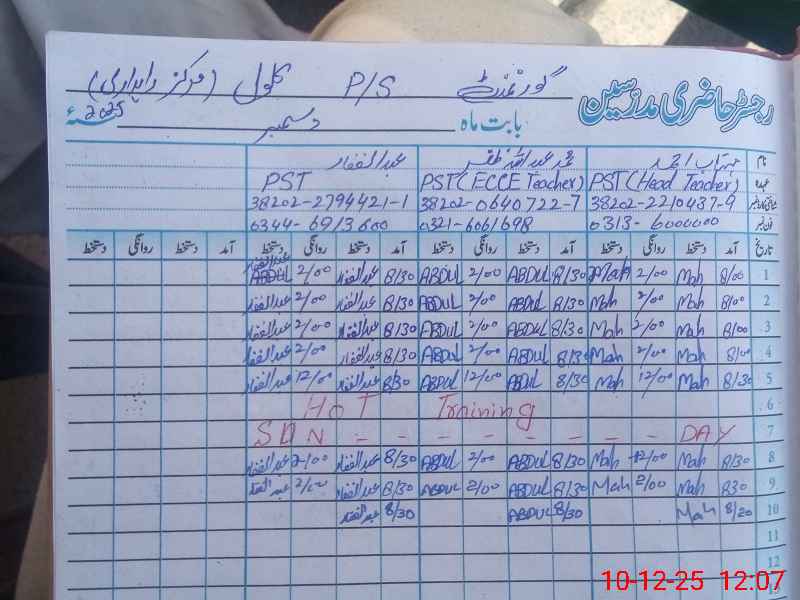 رجسٹر حاضری مدرسین گورنمنٹ P/S کلول (مرکز راہداری)
بابت ماہ دسمبر 2025ء
نام مہتاب احمد محمد عبداللہ ظفر عبدالغفار
عہدہ PST (Head Teacher) PST (ECCE Teacher) PST
شناختی کارڈ نمبر 38202-2210437-9 38202-0640722-7 38202-2794421-1
فون نمبر 0313-6000000 0321-6061698 0344-6913600
تاریخ آمد دستخط روانگی دستخط آمد دستخط روانگی دستخط آمد دستخط روانگی دستخط آمد دستخط روانگی دستخط
1 8/00 Mah 2/00 Mah 8/30 ABDUL 2/00 ABDUL 8/30 عبدالغفار 2/00 ABDUL عبدالغفار
2 8/00 Mah 2/00 Mah 8/30 ABDUL 2/00 ABDUL 8/30 عبدالغفار 2/00 عبدالغفار
3 8/00 Mah 2/00 Mah 8/30 ABDUL 2/00 ABDUL 8/30 عبدالغفار 2/00 عبدالغفار
4 8/00 Mah 2/00 Mah 8/30 ABDUL 2/00 ABDUL 8/30 عبدالغفار 2/00 عبدالغفار
5 8/30 Mah 12/00 Mah 8/30 ABDUL 12/00 ABDUL 8/30 عبدالغفار 12/00 عبدالغفار
6 HOT Training
7 SUN - - - - - - - - DAY
8 8/30 Mah 12/00 Mah 8/30 ABDUL 2/00 ABDUL 8/30 عبدالغفار 2/00 عبدالغفار
9 830 Mah 2/00 Mah 8/30 ABDUL 2/00 ABDUL 8/30 عبدالغفار 2/00 عبدالغفار
10 8/20 Mah 8/30 ABDUL 8/30 عبدالغفار
11
12
13
10-12-25 12:07